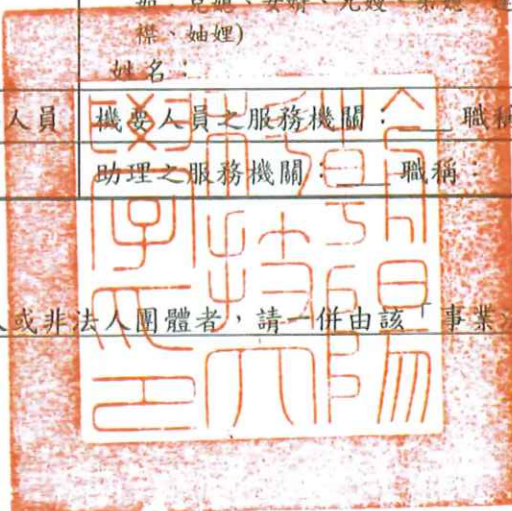 兒媳、女婿、兄嫂、弟媳、連
襟、妯娌)
姓名：
人員 機要人員之服務機關：__職稱
助理之服務機關：__職稱：
人或非法人團體者，請一併由該「事業